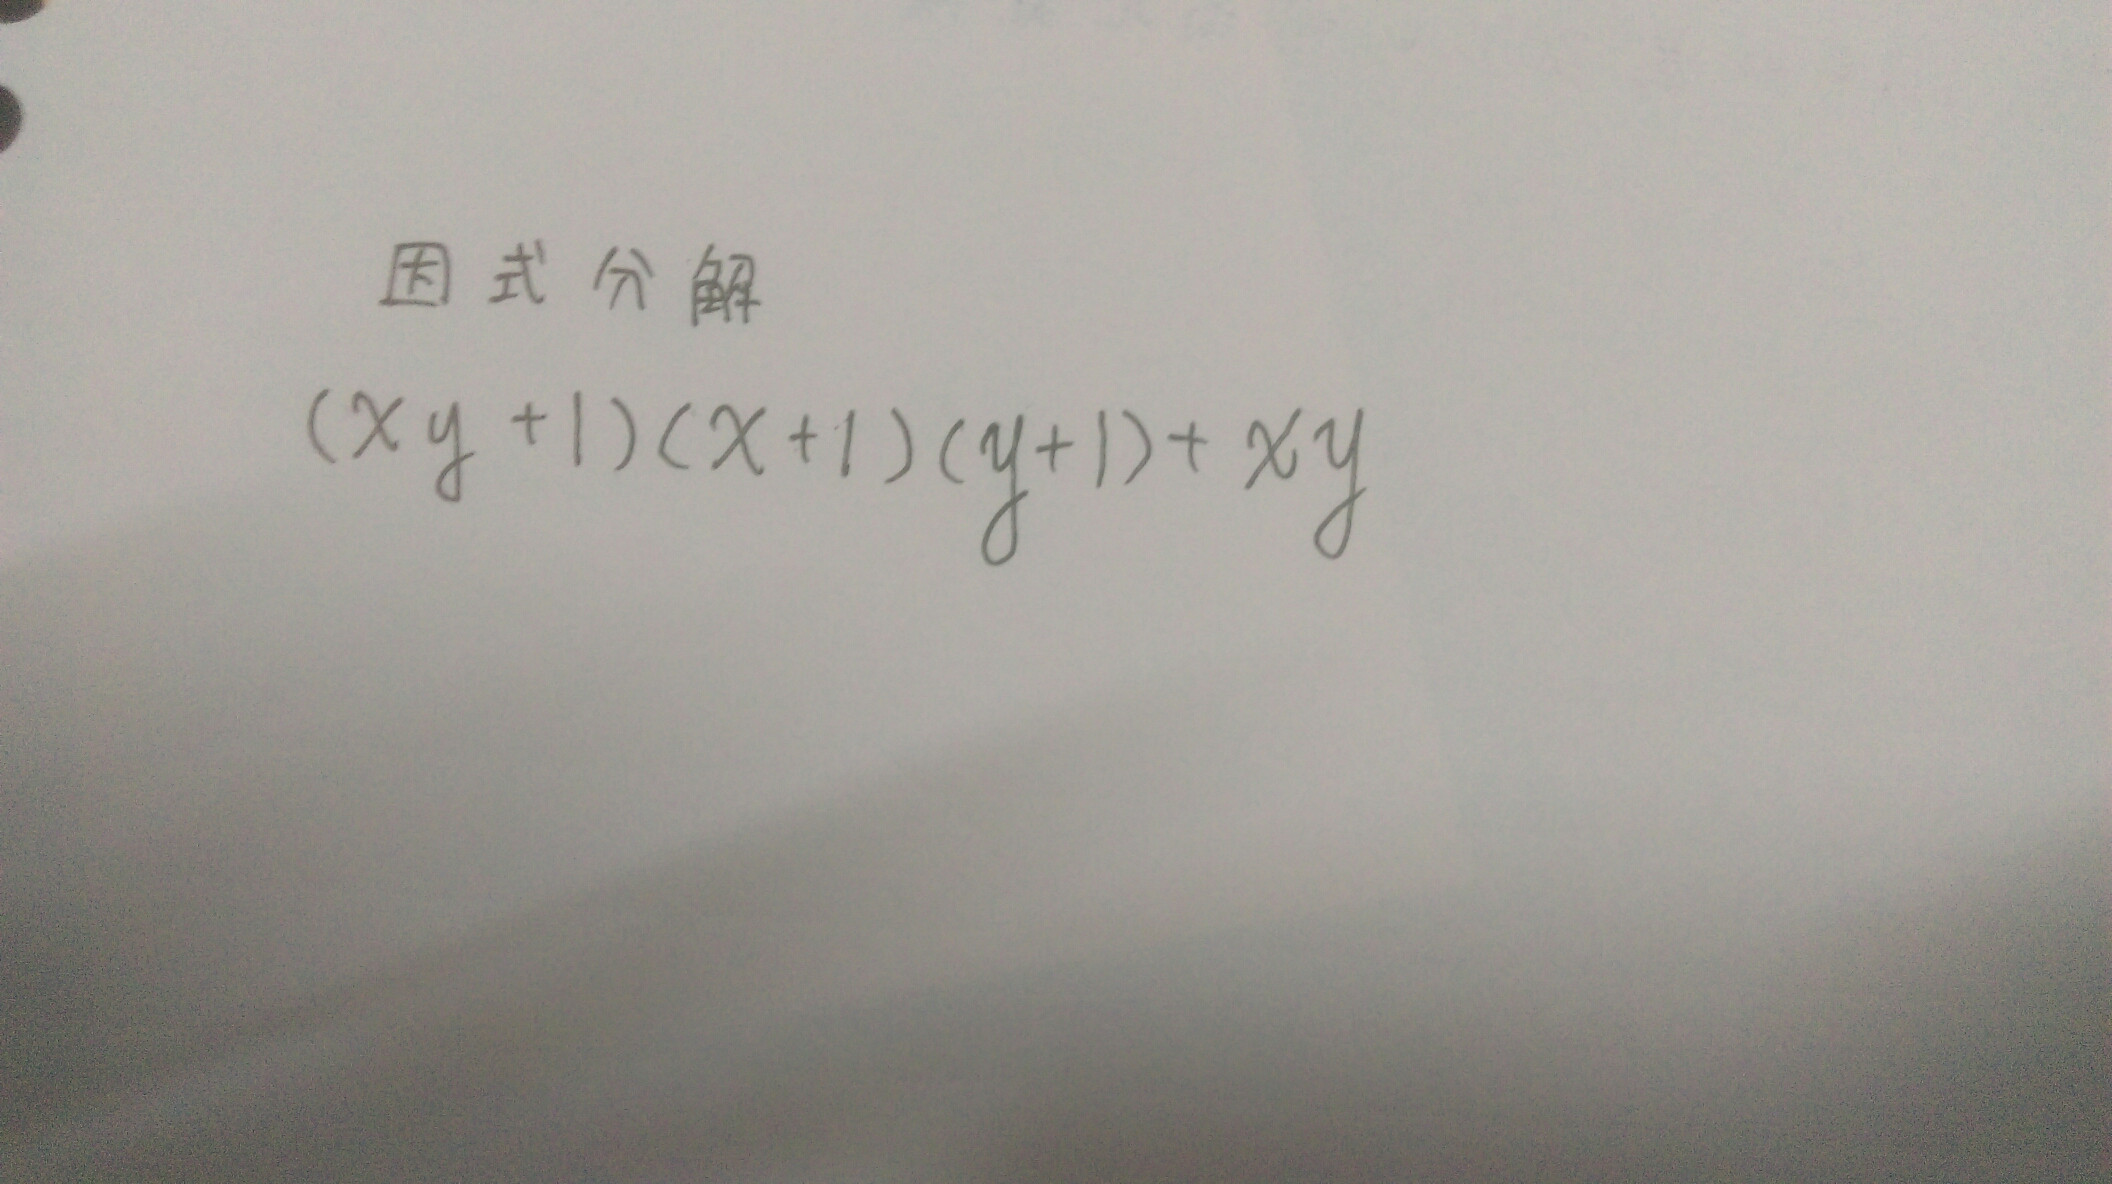 因式分解
(xy+1)(x+1)(y+1)+xy